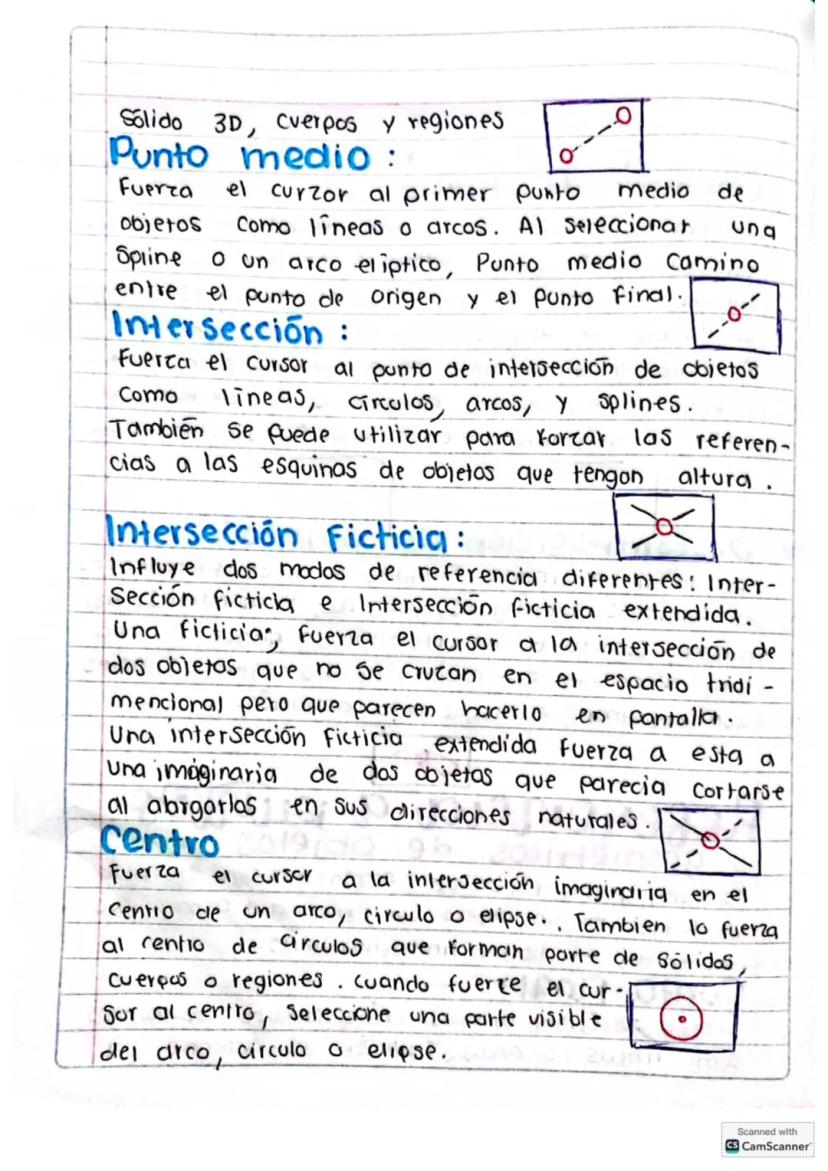 Sólido 3D, cuerpos y regiones
Punto medio:
Fuerza el curzor al primer punto medio de
objetos como líneas o arcos. Al seleccionar una
Spline o un arco eliptico, Punto medio Camino
entre el punto de origen y el punto final.
Intersección:
Fuerza el cursor al punto de intersección de objetos
como líneas, círculos, arcos, y splines.
También se puede utilizar para forzar las referen-
cias a las esquinas de objetos que tengan altura.
Intersección Ficticia:
Influye dos modos de referencia diferentes: Inter-
sección ficticia e Intersección ficticia extendida.
Una ficticia, fuerza el cursor a la intersección de
dos objetos que no se cruzan en el espacio tridi-
mencional pero que parecen hacerlo en pantalla.
Una intersección ficticia extendida fuerza a esta a
una imáginaria de dos objetos que parecia cortarse
al abrgarlos en sus direcciones naturales.
Centro
Fuerza el cursor a la intersección imaginaria en el
centro de un arco, circulo o elipse.. Tambien lo fuerza
al centro de círculos que forman parte de sólidos,
cuerpos o regiones. cuando fuerce el cur-
sor al centro, seleccione una parte visible
del arco, círculo o elipse.
Scanned with
CS CamScanner